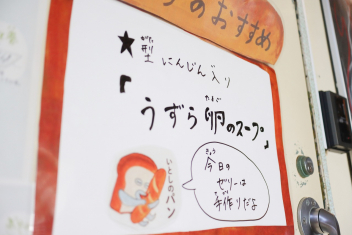 のおすすめ
★型にんじん入り
「うずら卵のスープ」
今日の
ゼリーは
手作りだよ
いとしのパン